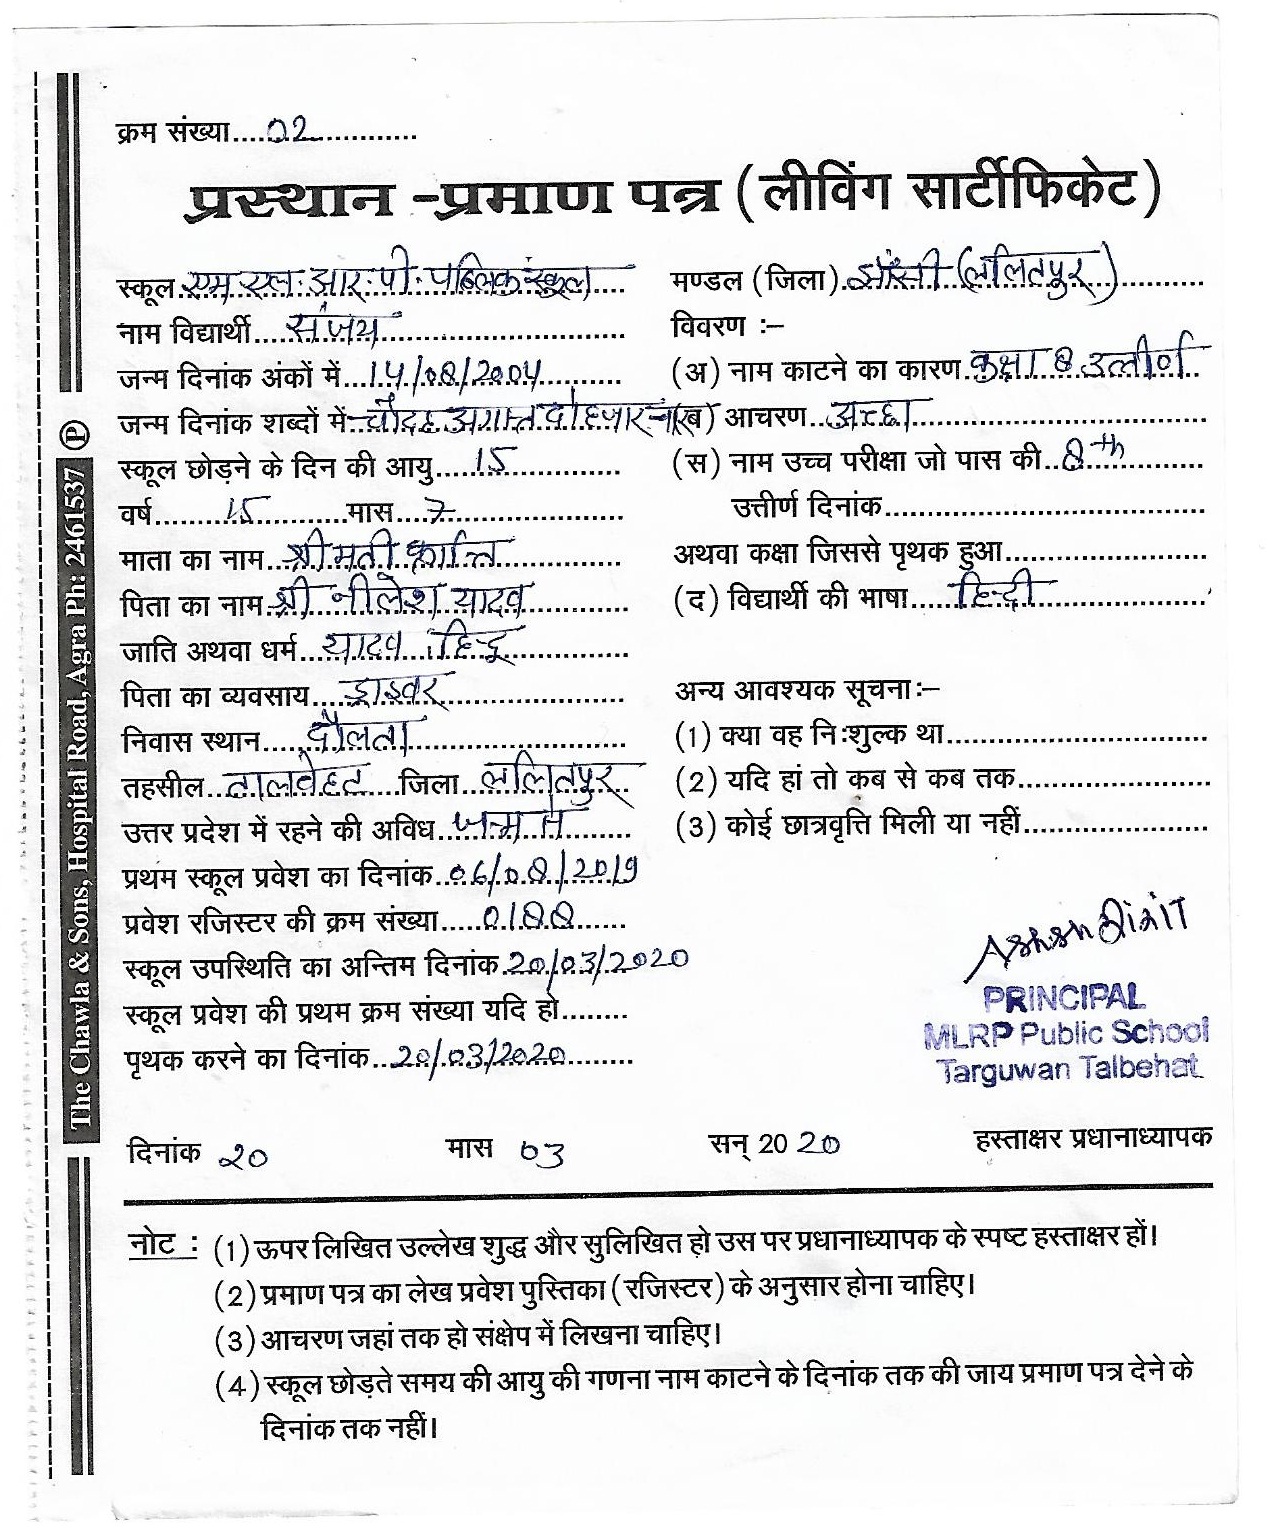 क्रम संख्या....02............
प्रस्थान -प्रमाण पत्र (लीविंग सार्टीफिकेट)
स्कूल एम.एल.आर.पी. पब्लिक स्कूल
नाम विद्यार्थी....संजय
जन्म दिनांक अंकों में...14/08/2004
जन्म दिनांक शब्दों में चौदह अगस्त दो हजार चार
स्कूल छोड़ने के दिन की आयु....15
वर्ष....15....मास...7
माता का नाम..श्रीमती क्रान्ति
पिता का नाम श्री नीलेश यादव
जाति अथवा धर्म...यादव हिन्दू
पिता का व्यवसाय...ड्राइवर
निवास स्थान....दौलता
तहसील..तालवेहट...जिला..ललितपुर
उत्तर प्रदेश में रहने की अविध..जन्म से
प्रथम स्कूल प्रवेश का दिनांक..06/08/2019
प्रवेश रजिस्टर की क्रम संख्या....0188
स्कूल उपस्थिति का अन्तिम दिनांक.20/03/2020
स्कूल प्रवेश की प्रथम क्रम संख्या यदि हो........
पृथक करने का दिनांक...20/03/2020
मण्डल (जिला) झाँसी (ललितपुर)
विवरण :–
(अ) नाम काटने का कारण कक्षा 8 उत्तीर्ण
(ब) आचरण..अच्छा
(स) नाम उच्च परीक्षा जो पास की..8th
उत्तीर्ण दिनांक........
अथवा कक्षा जिससे पृथक हुआ........
(द) विद्यार्थी की भाषा.....हिन्दी
अन्य आवश्यक सूचना:–
(1) क्या वह नि:शुल्क था........
(2) यदि हां तो कब से कब तक........
(3) कोई छात्रवृत्ति मिली या नहीं........
PRINCIPAL
MLRP Public School
Targuwan Talbehat
दिनांक 20 मास 03 सन् 2020 हस्ताक्षर प्रधानाध्यापक
नोट : (1) ऊपर लिखित उल्लेख शुद्ध और सुलिखित हो उस पर प्रधानाध्यापक के स्पष्ट हस्ताक्षर हों।
(2) प्रमाण पत्र का लेख प्रवेश पुस्तिका (रजिस्टर) के अनुसार होना चाहिए।
(3) आचरण जहां तक हो संक्षेप में लिखना चाहिए।
(4) स्कूल छोड़ते समय की आयु की गणना नाम काटने के दिनांक तक की जाय प्रमाण पत्र देने के
दिनांक तक नहीं।
The Chawla & Sons, Hospital Road, Agra Ph: 2461537 Ⓟ